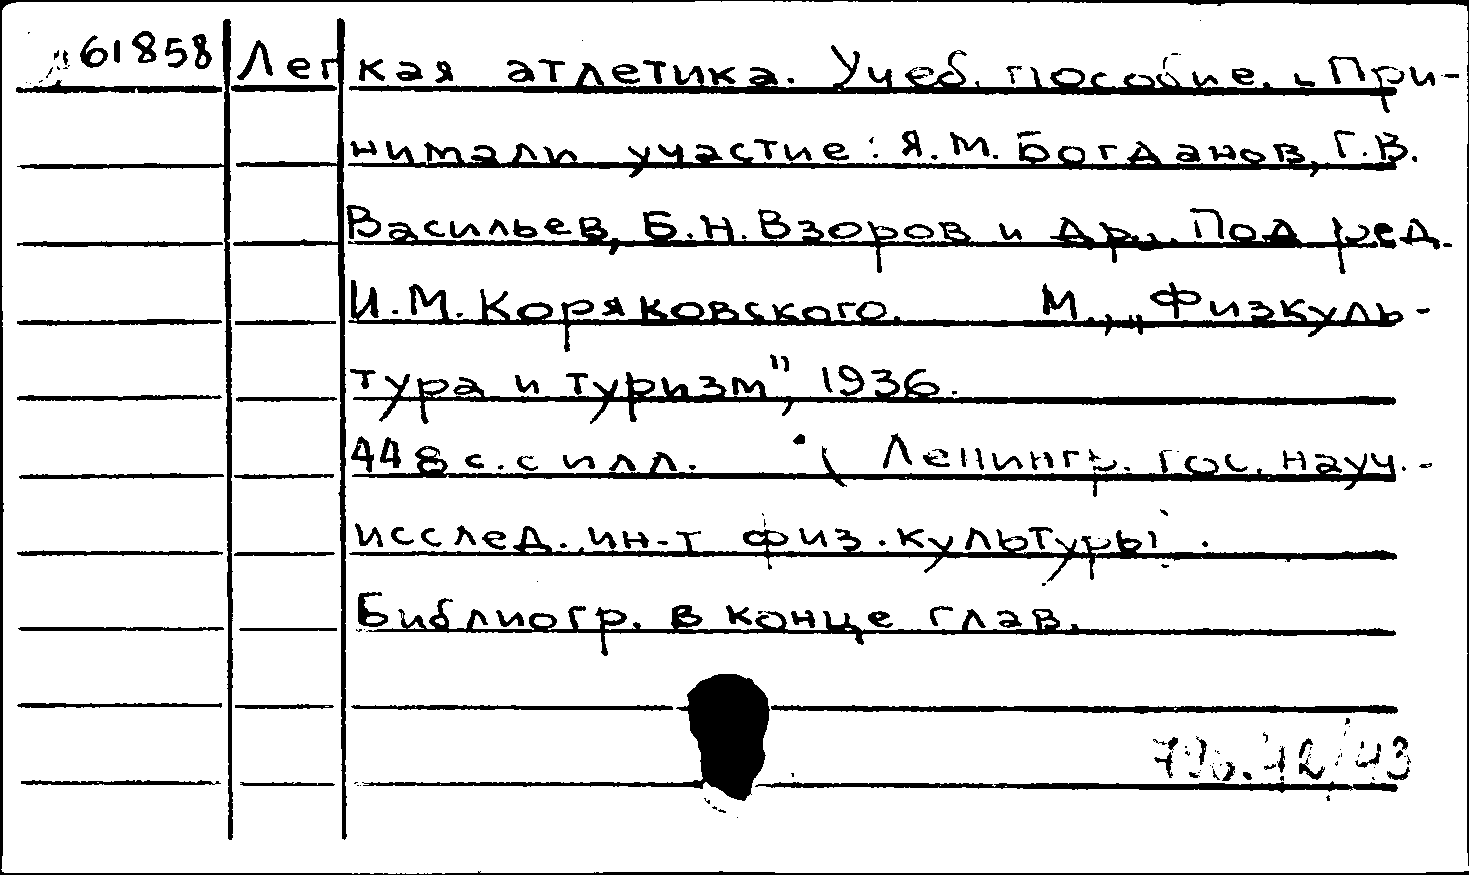 61858 Легкая атлетика. Учеб. пособие. При-
нимали участие: Я.М. Богданов, Г.В.
Васильев, Б.Н. Взоров и др. Под ред.
И.М. Коряковского. М., „Физкуль-
тура и туризм", 1936.
448 с. с илл. (Ленингр. гос. науч.-
исслед. ин-т физ. культуры).
Библиогр. в конце глав.
796.42/43